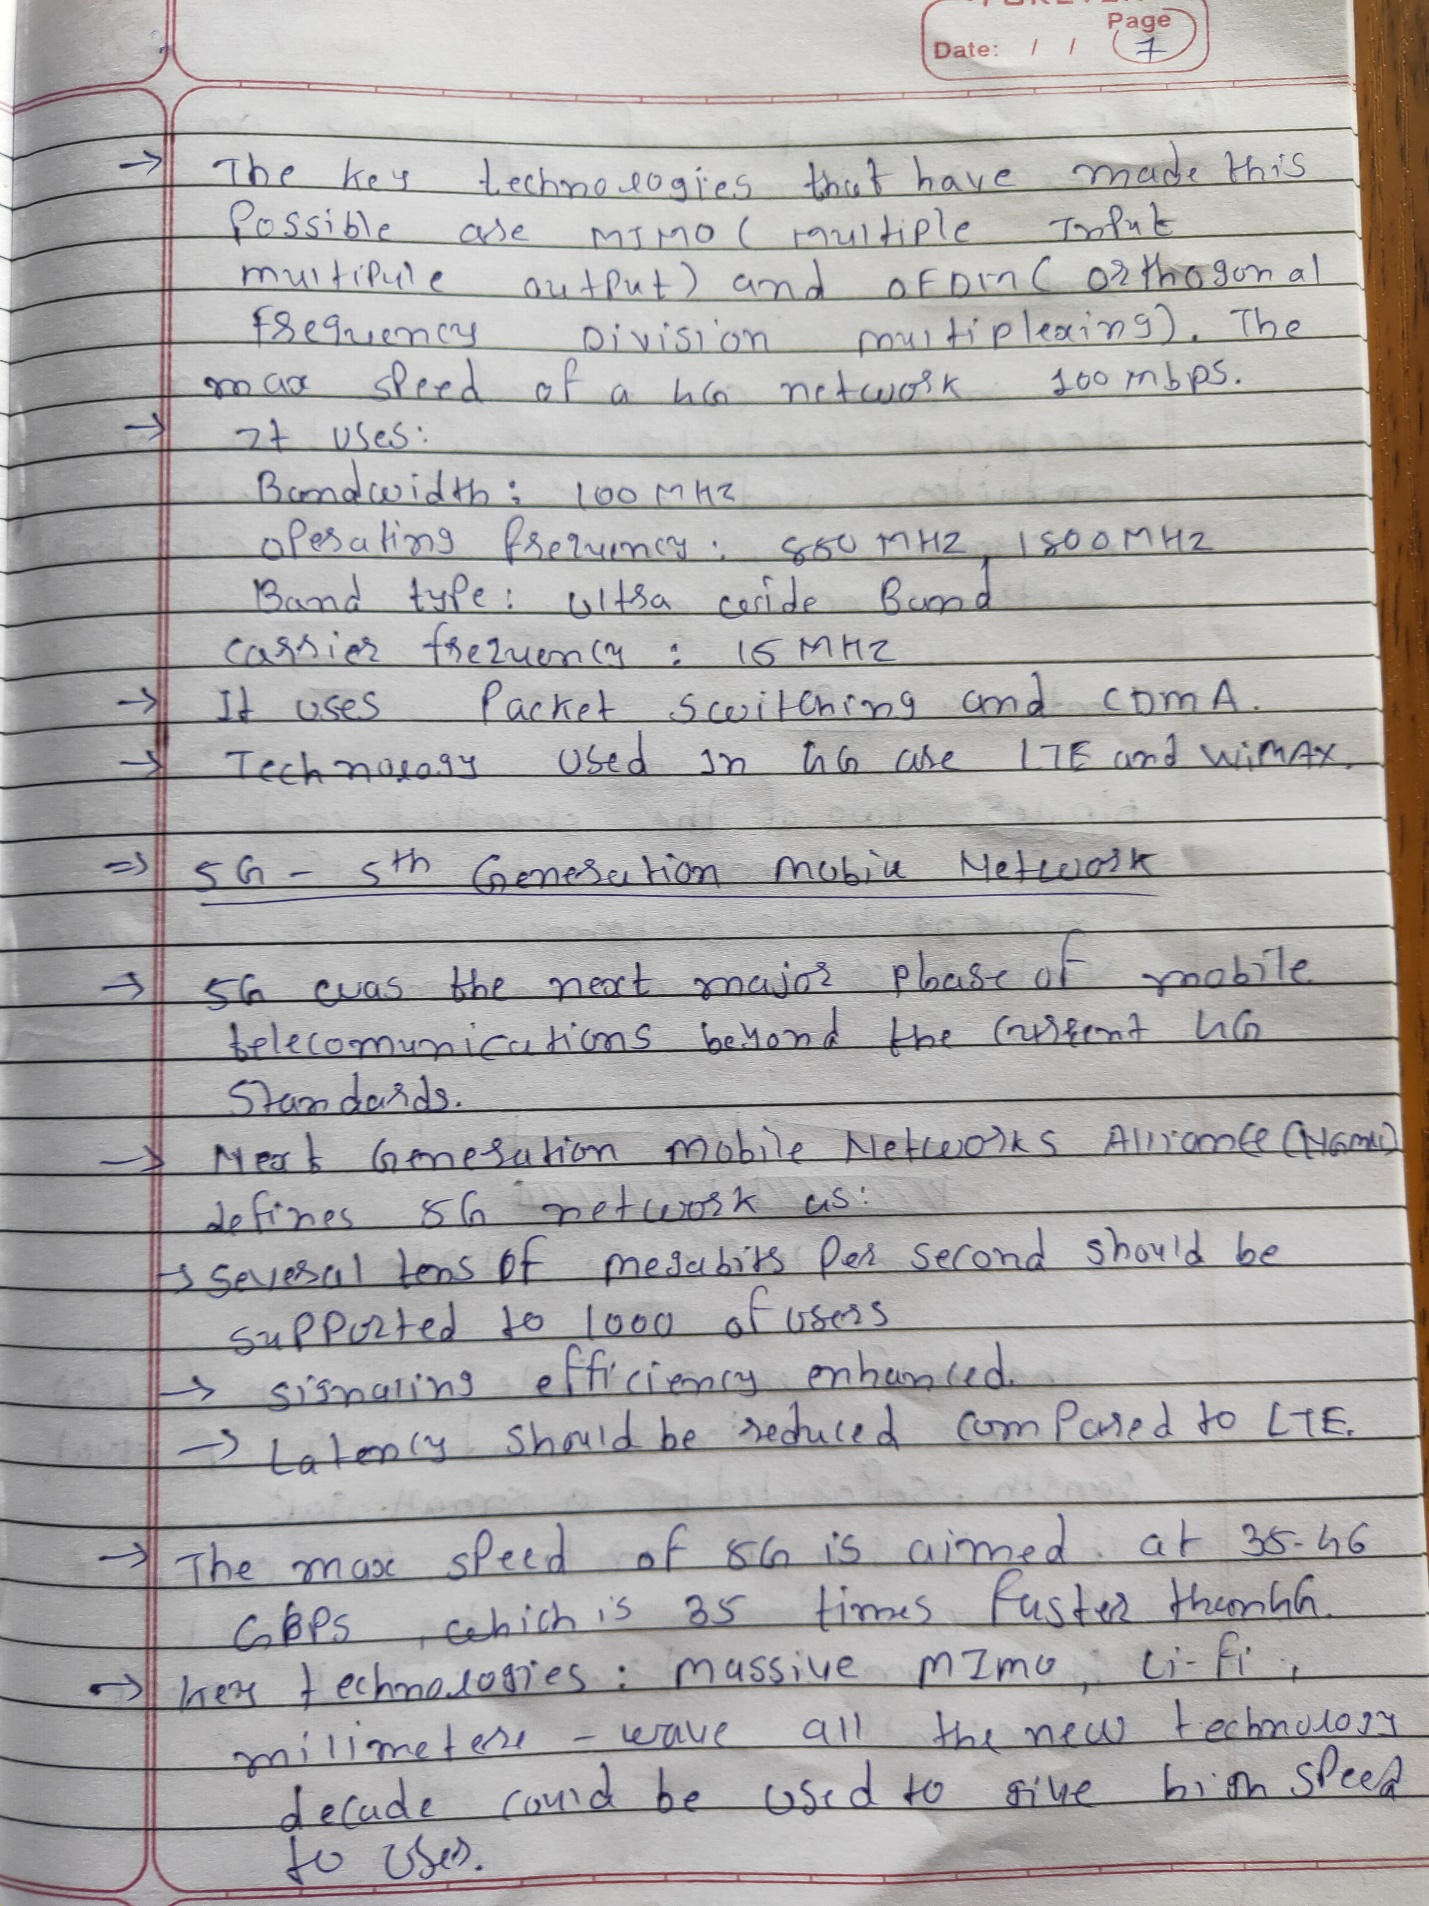 Page
Date: / / 7
→ The key technologies that have made this
Possible are MIMO ( multiple Input
multipule output) and OFDM ( orthogonal
Frequency Division multiplexing). The
max speed of a 4G network 100 mbps.
→ It uses:
Bandwidth: 100 MHZ
operating frequency: 850 MHZ, 1800 MHZ
Band type: Ultra wide Band
carrier frequency: 15 MHZ
→ It uses Packet switching and CDMA.
→ Technology used In 4G are LTE and WiMAX.
⇒ 5G - 5th Generation Mobile Network
→ 5G was the next major phase of mobile
telecomunications beyond the current 4G
Standards.
→ Next Generation Mobile Networks Alliance (NGMN)
defines 5G network as:
→ several tens of megabits Per second should be
supported to 1000 of users
→ signaling efficiency enhanced.
→ Latency should be reduced compared to LTE.
→ The max speed of 5G is aimed at 35.46
GBPS, which is 35 times faster than 4G.
→ key technologies: massive MImo, Li-Fi,
milimetere - wave all the new technology
decade could be used to give high speed
to uses.